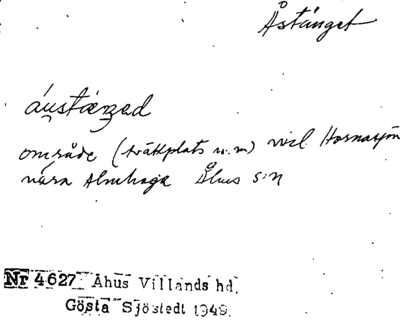 Åstänget
åustæŋad
område (tvättplats u.m) vid Hornasjön
nära Almhaga Åhus s:n
Nr 4627 Åhus Villands hd.
Gösta Sjöstedt 1949.